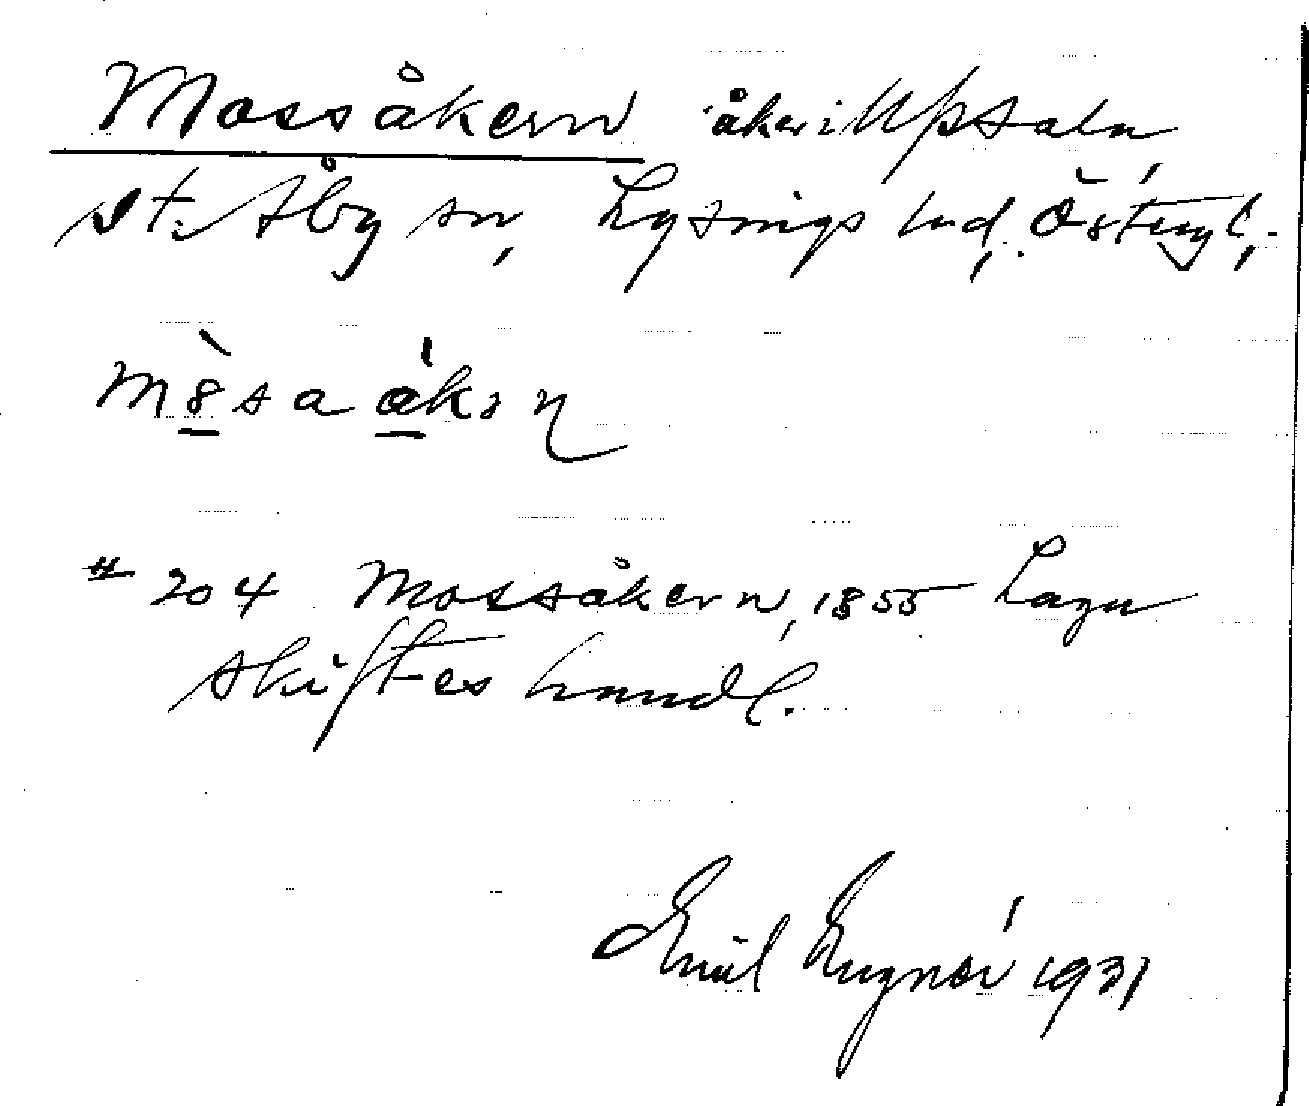 Mossåkern åker i Upsala
St. Åby sn, Lysings hd. Östergl.
mòsaákən
# 204 Mossåkern, 1855 Laga
skiftes handl.
Emil 1931